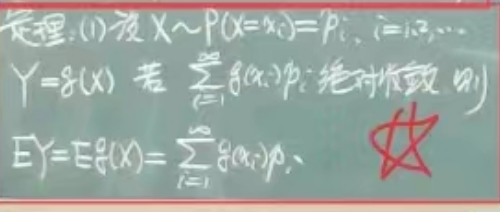 定理:(1)设 X~P(X=xᵢ)=Pᵢ, i=1,2,...
Y=g(X) 若 ∑_{i=1}^{∞} g(xᵢ)pᵢ 绝对收敛 则
EY=Eg(X)=∑_{i=1}^{∞} g(xᵢ)pᵢ、